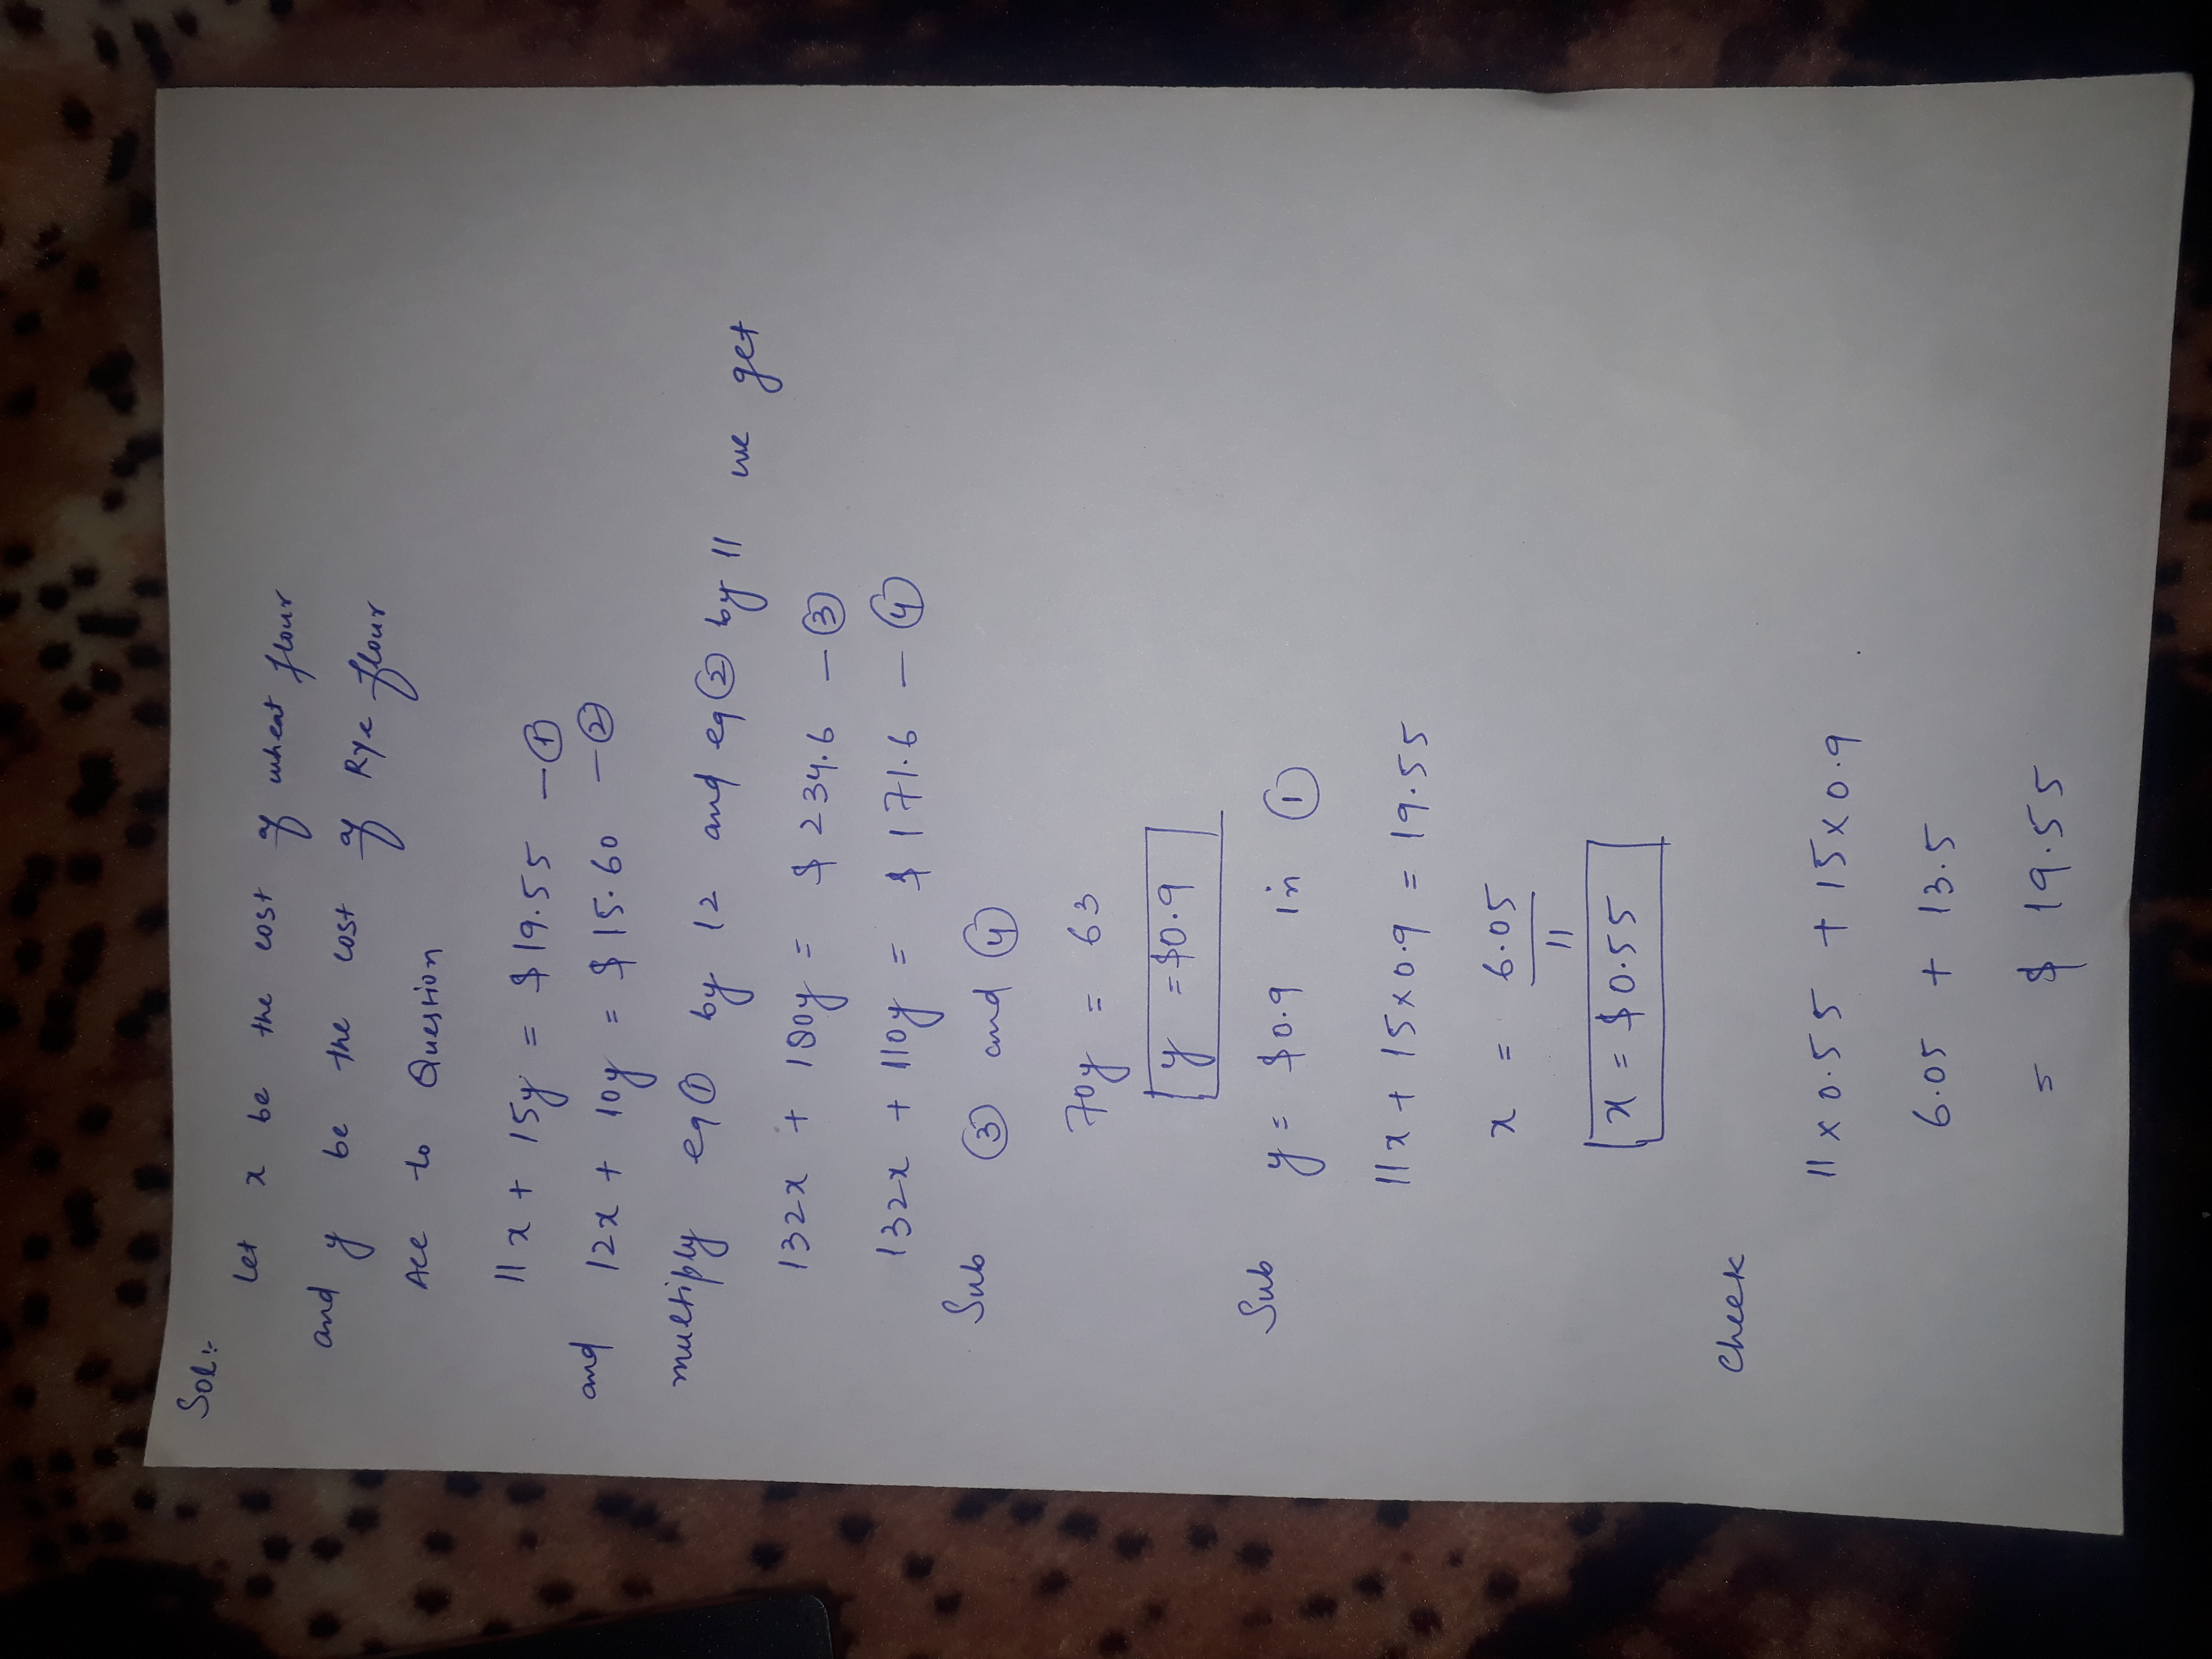 Sol:-
Let x be the cost of wheat flour
and y be the cost of Rye flour
Acc to Question
11x + 15y = $19.55 - ①
and 12x + 10y = $15.60 - ②
multiply eq① by 12 and eq② by 11 we get
132x + 180y = $234.6 - ③
132x + 110y = $171.6 - ④
Sub ③ and ④
70y = 63
y = $0.9
Sub y = $0.9 in ①
11x + 15×0.9 = 19.55
x = 6.05/11
x = $0.55
Cheek
11×0.55 + 15×0.9
6.05 + 13.5
= $19.55